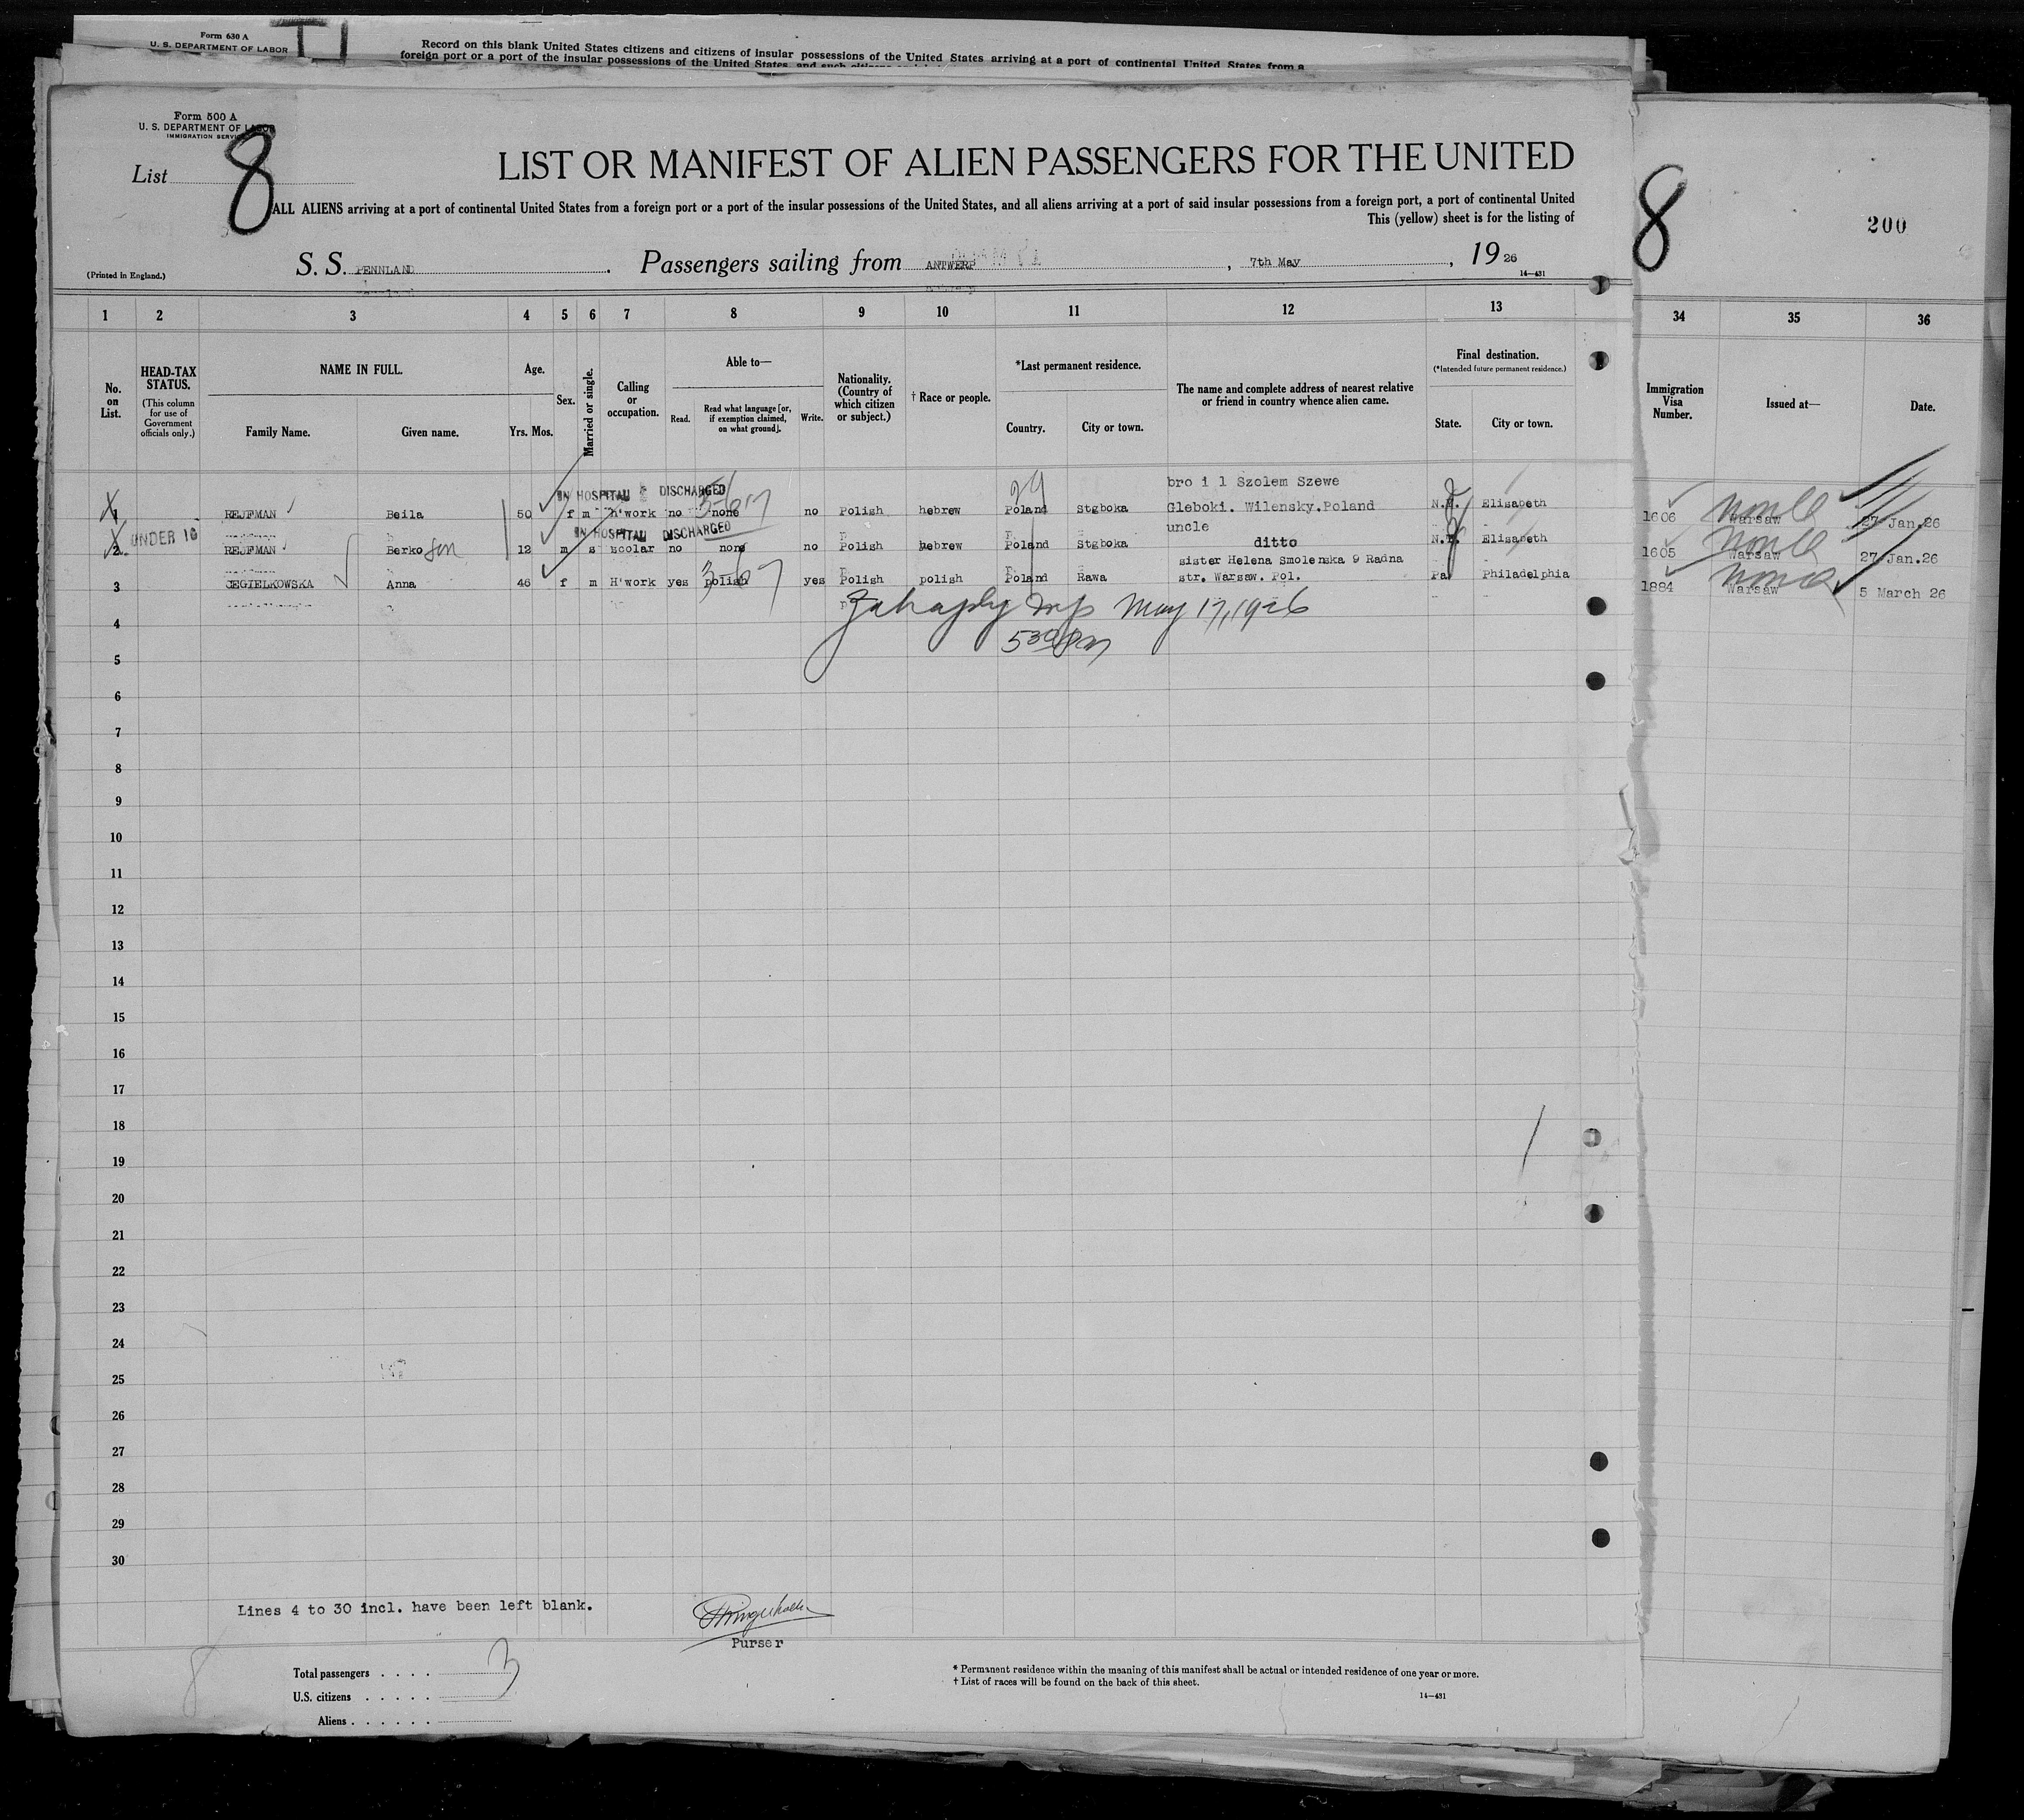 Form 630 A
U. S. DEPARTMENT OF LABOR
Record on this blank United States citizens and citizens of insular possessions of the United States arriving at a port of continental United States from a
foreign port or a port of the insular possessions of the United States, and such
Form 500 A
U. S. DEPARTMENT OF LABOR
IMMIGRATION SERVICE
List 8
LIST OR MANIFEST OF ALIEN PASSENGERS FOR THE UNITED
ALL ALIENS arriving at a port of continental United States from a foreign port or a port of the insular possessions of the United States, and all aliens arriving at a port of said insular possessions from a foreign port, a port of continental United
This (yellow) sheet is for the listing of
8
200
(Printed in England.)
S. S. PENNLAND . Passengers sailing from ANTWERP , 7th May , 19 26
14—431
1 2 3 4 5 6 7 8 9 10 11 12 13 34 35 36
No. on List.
HEAD-TAX STATUS. (This column for use of Government officials only.)
NAME IN FULL.
Family Name. Given name.
Age.
Yrs. Mos.
Sex.
Married or single.
Calling or occupation.
Able to—
Read. Read what language [or, if exemption claimed, on what ground]. Write.
Nationality. (Country of which citizen or subject.)
† Race or people.
*Last permanent residence.
Country. City or town.
The name and complete address of nearest relative or friend in country whence alien came.
Final destination.
(*Intended future permanent residence.)
State. City or town.
Immigration Visa Number.
Issued at—
Date.
IN HOSPITAL DISCHARGED
bro i l Szolem Szewe
1 REJFMAN Beila 50 f m h'work no none no Polish hebrew Poland Stgboka Gleboki. Wilensky.Poland Elisabeth 1606 Warsaw 27 Jan.26
UNDER 16
IN HOSPITAL DISCHARGED
uncle
2 REJFMAN Berko son 12 m s scolar no none no Polish hebrew Poland Stgboka ditto Elisabeth 1605 Warsaw 27 Jan.26
sister Helena Smolenska 9 Radna
3 CEGIELKOWSKA Anna 46 f m H'work yes polish yes Polish polish Poland Rawa str. Warsaw. Pol. Pa Philadelphia 1884 Warsaw 5 March 26
May 17, 1926
4
530 pm
5
6
7
8
9
10
11
12
13
14
15
16
17
18
19
20
21
22
23
24
25
26
27
28
29
30
Lines 4 to 30 incl. have been left blank.
Purser
Total passengers . . . . 3
U.S. citizens . . . . .
Aliens . . . . . .
* Permanent residence within the meaning of this manifest shall be actual or intended residence of one year or more.
† List of races will be found on the back of this sheet.
14—431
8